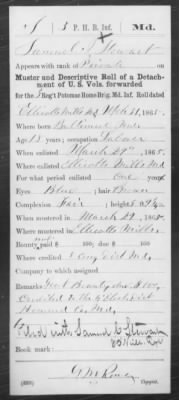 S | 3 P. H. B. Inf. | Md.
Samuel S. Stewart
Appears with rank of Private on
Muster and Descriptive Roll of a Detach-
ment of U. S. Vols. forwarded
for the 3 Reg't Potomac Home Brig. Md. Inf. Roll dated
Ellicotts Mills Md, Mch 31, 1865.
Where born Baltimore Md.
Age 18 years; occupation
When enlisted March 29", 1865.
Where enlisted Ellicotts Mills Md
For what period enlisted one years.
Eyes Blue; hair Brown
Complexion Fair; height 5 ft. in.
When mustered in March 29, 1865.
Where mustered in Ellicotts Mills
Bounty paid $ 100; due $ 100
Where credited 5 Cong Dist Md
Company to which assigned
Remarks: Bounty due $100
Credited to the Elect Dist
Howard Co. Md.
Filed with Samuel S. Stewart
Book mark:
Copyist.